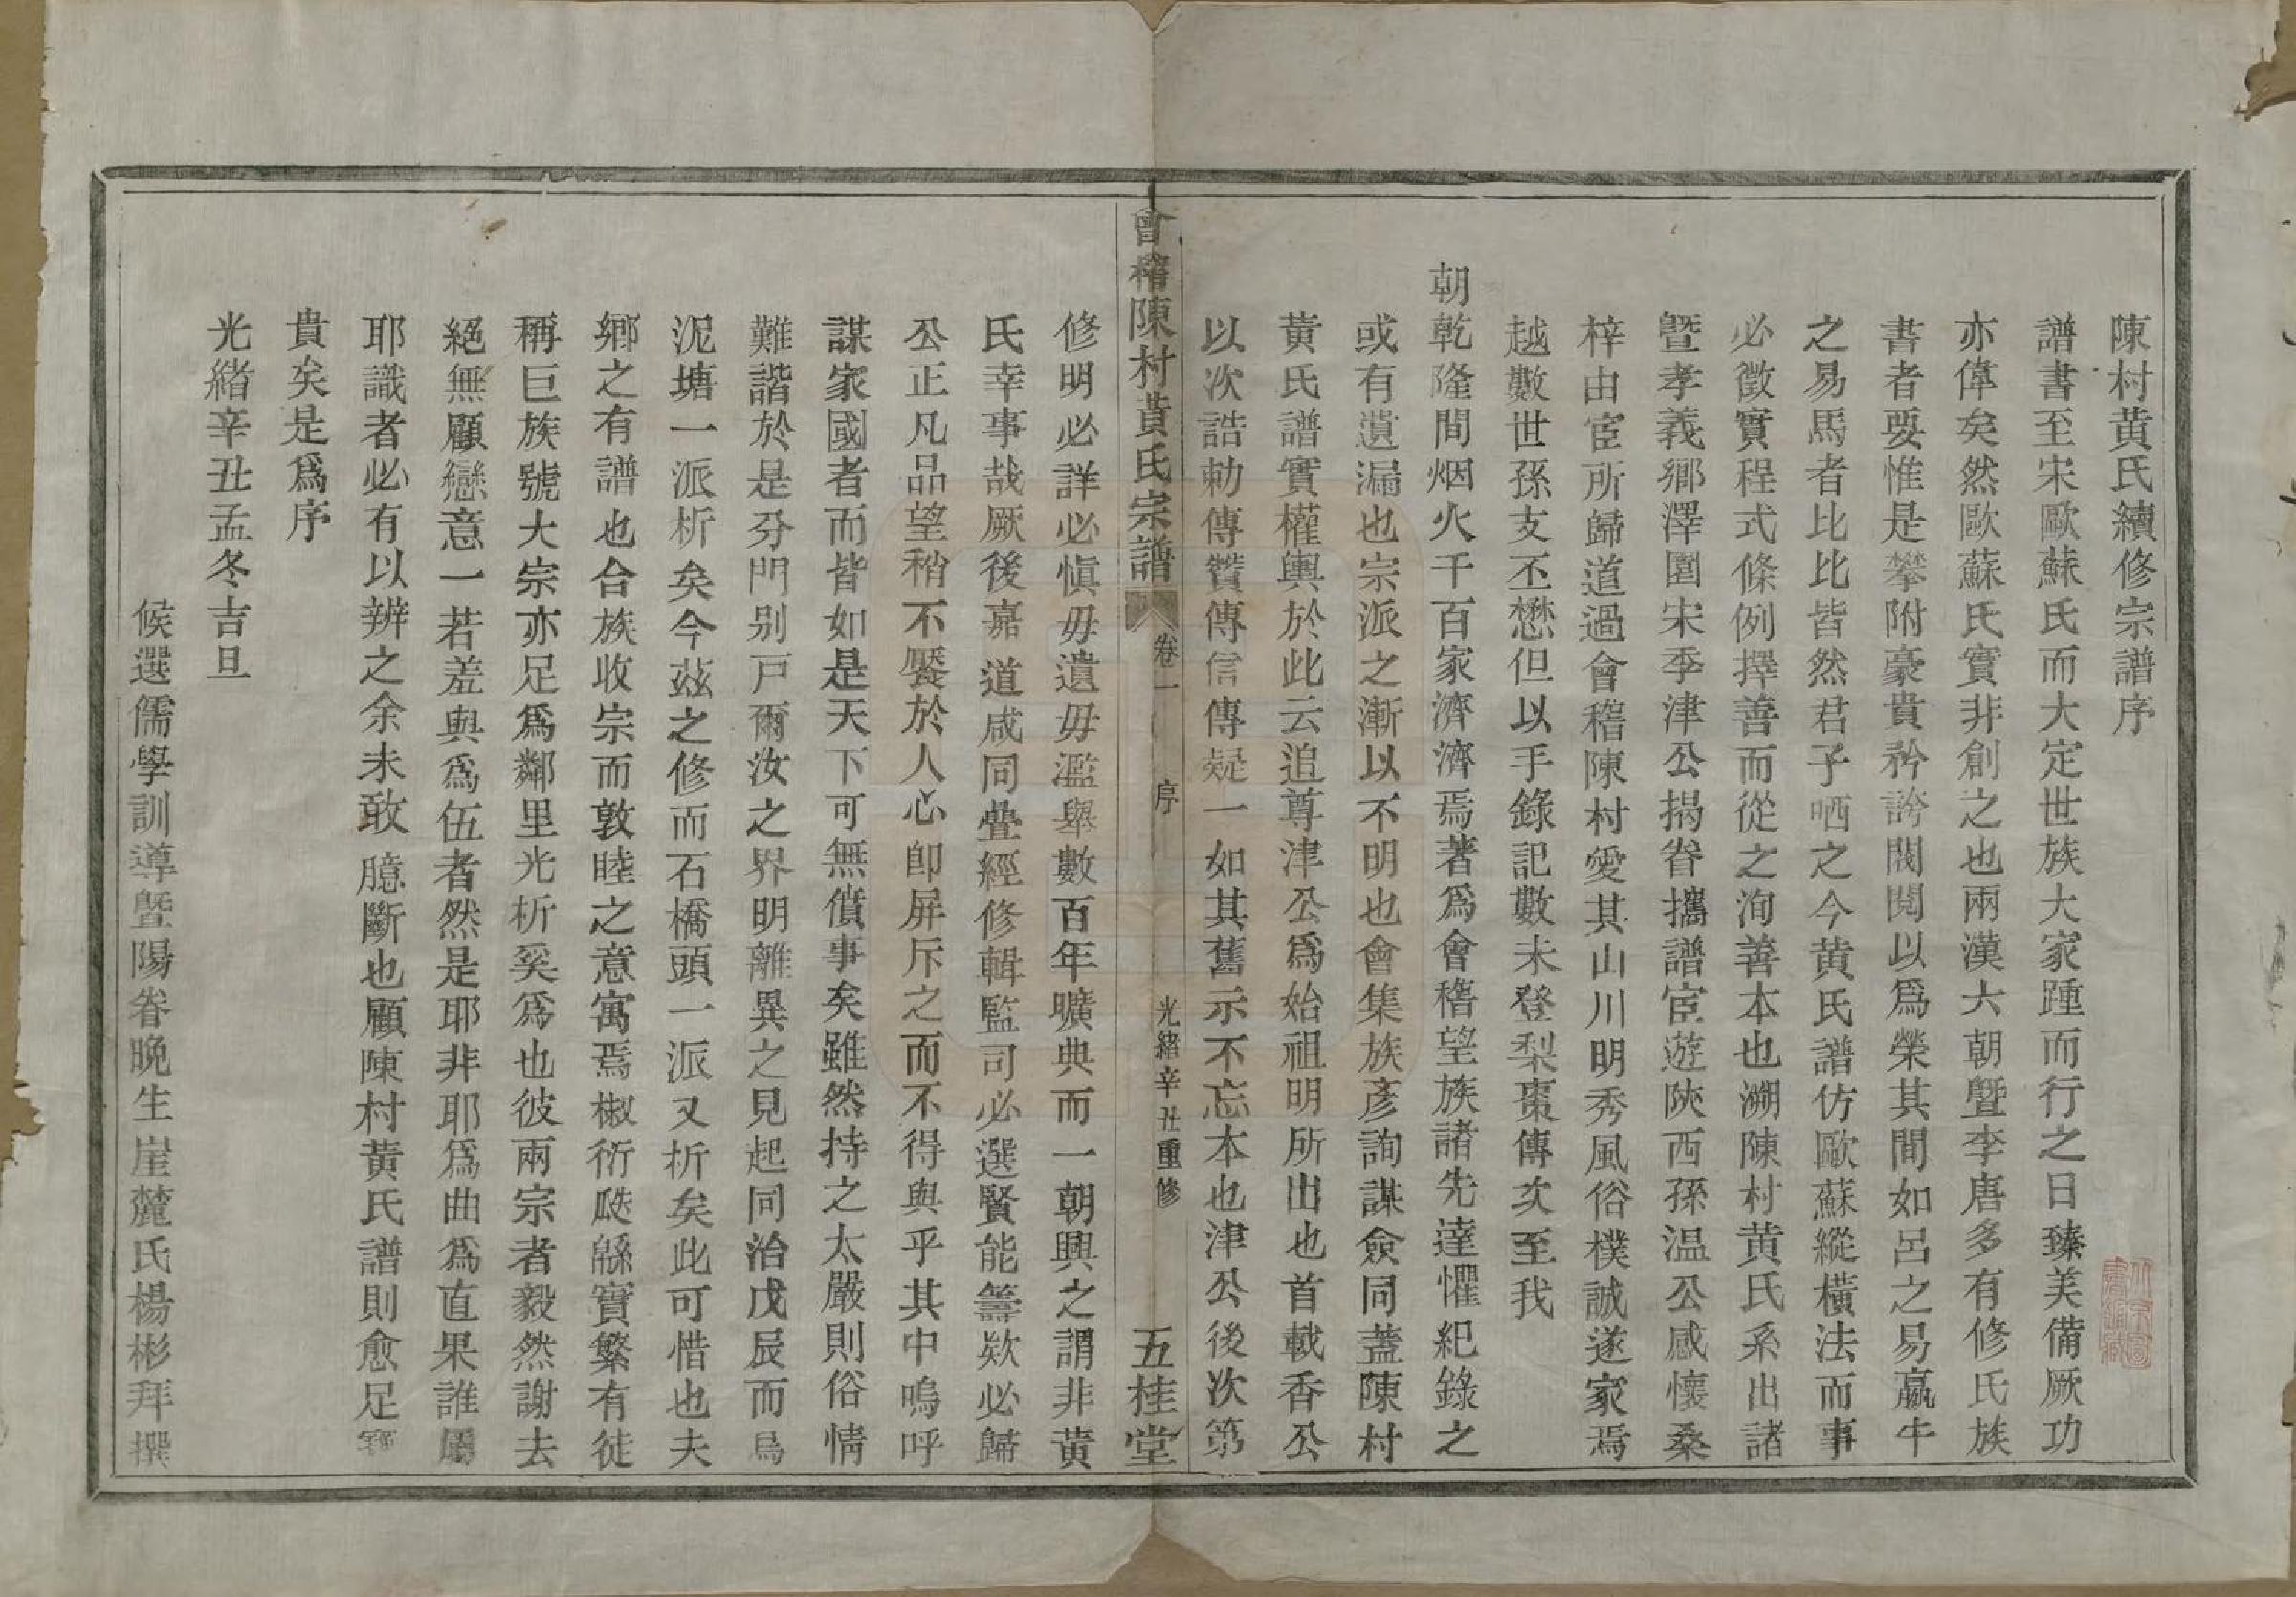 陳村黄氏續修宗譜序
譜書至宋歐蘇氏而大定世族大家踵而行之日臻美備厥功
亦偉矣然歐蘇氏實非創之也兩漢六朝曁李唐多有修氏族
書者要惟是攀附豪貴矜誇閥閲以爲榮其間如呂之易嬴牛
之易馬者比比皆然君子哂之今黄氏譜仿歐蘇縱橫法而事
必徵實程式條例擇善而從之洵善本也溯陳村黄氏系出諸
曁孝義鄉澤園宋季津公挈眷攜譜宦遊陜西孫温公感懷桑
梓由宦所歸道過會稽陳村愛其山川明秀風俗樸誠遂家焉
越數世孫支丕懋但以手錄記數未登梨棗傳次至我
朝乾隆間烟火千百家濟濟焉著爲會稽望族諸先達懼紀錄之
或有遺漏也宗派之漸以不明也會集族彥詢謀僉同蓋陳村
黃氏譜實權輿於此云追尊津公爲始祖明所出也首載香公
以次誥勅傳贊傳信傳疑一如其舊示不忘本也津公後次第
會稽陳村黃氏宗譜
卷一
序
光緒辛丑重修
五桂堂
修明必詳必愼毋遺毋濫舉數百年曠典而一朝興之謂非黃
氏幸事哉厥後嘉道咸同疊經修輯監司必選賢能籌欵必歸
公正凡品望稍不饜於人心卽屏斥之而不得與乎其中嗚呼
謀家國者而皆如是天下可無僨事矣雖然持之太嚴則俗情
難諧於是分門别戸爾汝之界明離異之見起同治戊辰而烏
泥塘一派析矣今茲之修而石橋頭一派又析矣此可惜也夫
鄉之有譜也合族收宗而敦睦之意寓焉椒衍瓞緜實繁有徒
稱巨族號大宗亦足爲鄰里光析奚爲也彼兩宗者毅然謝去
絕無顧戀意一若羞與爲伍者然是耶非耶爲曲爲直果誰屬
耶識者必有以辨之余未敢臆斷也顧陳村黄氏譜則愈足寶
貴矣是爲序
光緒辛丑孟冬吉旦
候選儒學訓導曁陽眷晩生崖麓氏楊彬拜撰